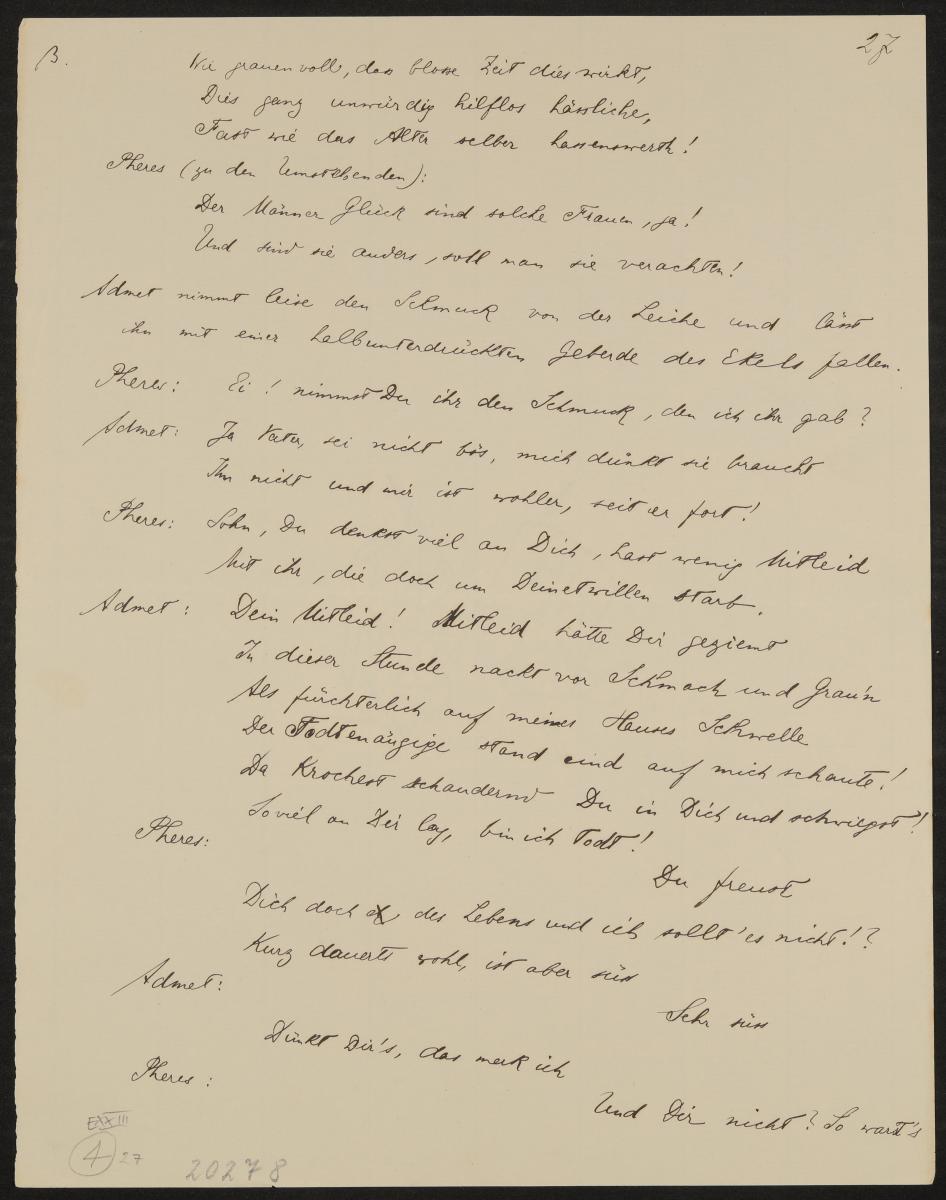 B.
27
Wie grauenvoll, dass blosse Zeit dies wirkt,
Dies ganz unwürdig hilflos hässliche,
Fast wie das Alter selber hassenswerth!
Pheres (zu den Umstehenden):
Der Männer Glück sind solche Frauen, ja!
Und sind sie anders, soll man sie verachten!
Admet nimmt leise den Schmuck von der Leiche und lässt
ihn mit einer halbunterdrückten Geberde des Ekels fallen.
Pheres: Ei! nimmst Du ihr den Schmuck, den ich ihr gab?
Admet: Ja Vater, sei nicht bös, mich dünkt sie braucht
Ihn nicht und mir ist wohler, seit er fort!
Pheres: Sohn, Du denkst viel an Dich, hast wenig Mitleid
Mit ihr, die doch um Deinetwillen starb.
Admet: Dein Mitleid! Mitleid hätte Dir geziemt
In dieser Stunde nackt vor Schmach und Grau'n
Als fürchterlich auf meines Hauses Schwelle
Der Todtenäugige stand und auf mich schaute!
Da krochest schaudernd Du in Dich und schwiegst!
Soviel an Dir lag, bin ich Todt!
Pheres:
Du freust
Dich doch des Lebens und ich sollt' es nicht!?
Kurz dauerts wohl, ist aber süss
Admet:
Sehr süss
Dünkt Dir's, das merk ich
Pheres:
Und Dir nicht? So wart's
EXXIII
4
27
20278